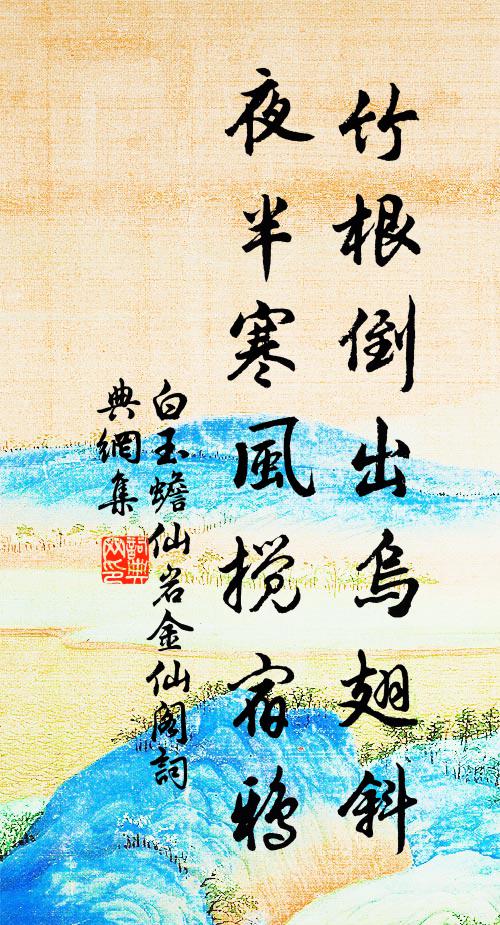 竹根倒出烏翅斜
夜半寒風攪宿鴉
白玉蟾仙岩金仙閣詞
典網集